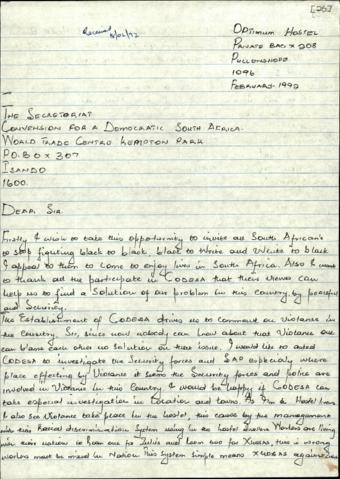 [26]
Received
OPTIMUM HOSTEL
PRIVATE BAG X 208
PULLENSHOPE
1096
FEBRUARY. 1992
THE SECRETARIAT
CONVENSION FOR A DEMOCRATIC SOUTH AFRICA.
WORLD TRADE CENTRE KEMPTON PARK
P.O. BOX 307
ISANDO
1600.
DEAR. SIR
Firstly I wish to take this opportunity to invite all South African's
to stop fighting black to black, black to White and White to black
I appeal to them to come to enjoy lives in South Africa. Also I want
to thank all the participate in CODESA that their views can
help us to find a solution of our problem in this country by peaceful
and Security.
The Establishment of CODESA drives us to comment on Violance in
the Country Sir, since now nobody can know about that Violance one
can blame each other no solution on that issue. I would like to asked
CODESA to investigate the Security forces and SAP especialy where
place effecting by Violance it seems the Security forces and police are
involved in Violance in this Country. I would be happy if CODESA can
take especial investigation in Location and towns. As I'm a Hostel
I also see Violance take place in the hostel, this cause by the management
with this Racial discrimination System using in the hostel where Workers are living
with this nation is Room one for Zulus and Room two for Xhosas, this is wrong
workers must be mixed in Nation This System Simple means Xhosas against